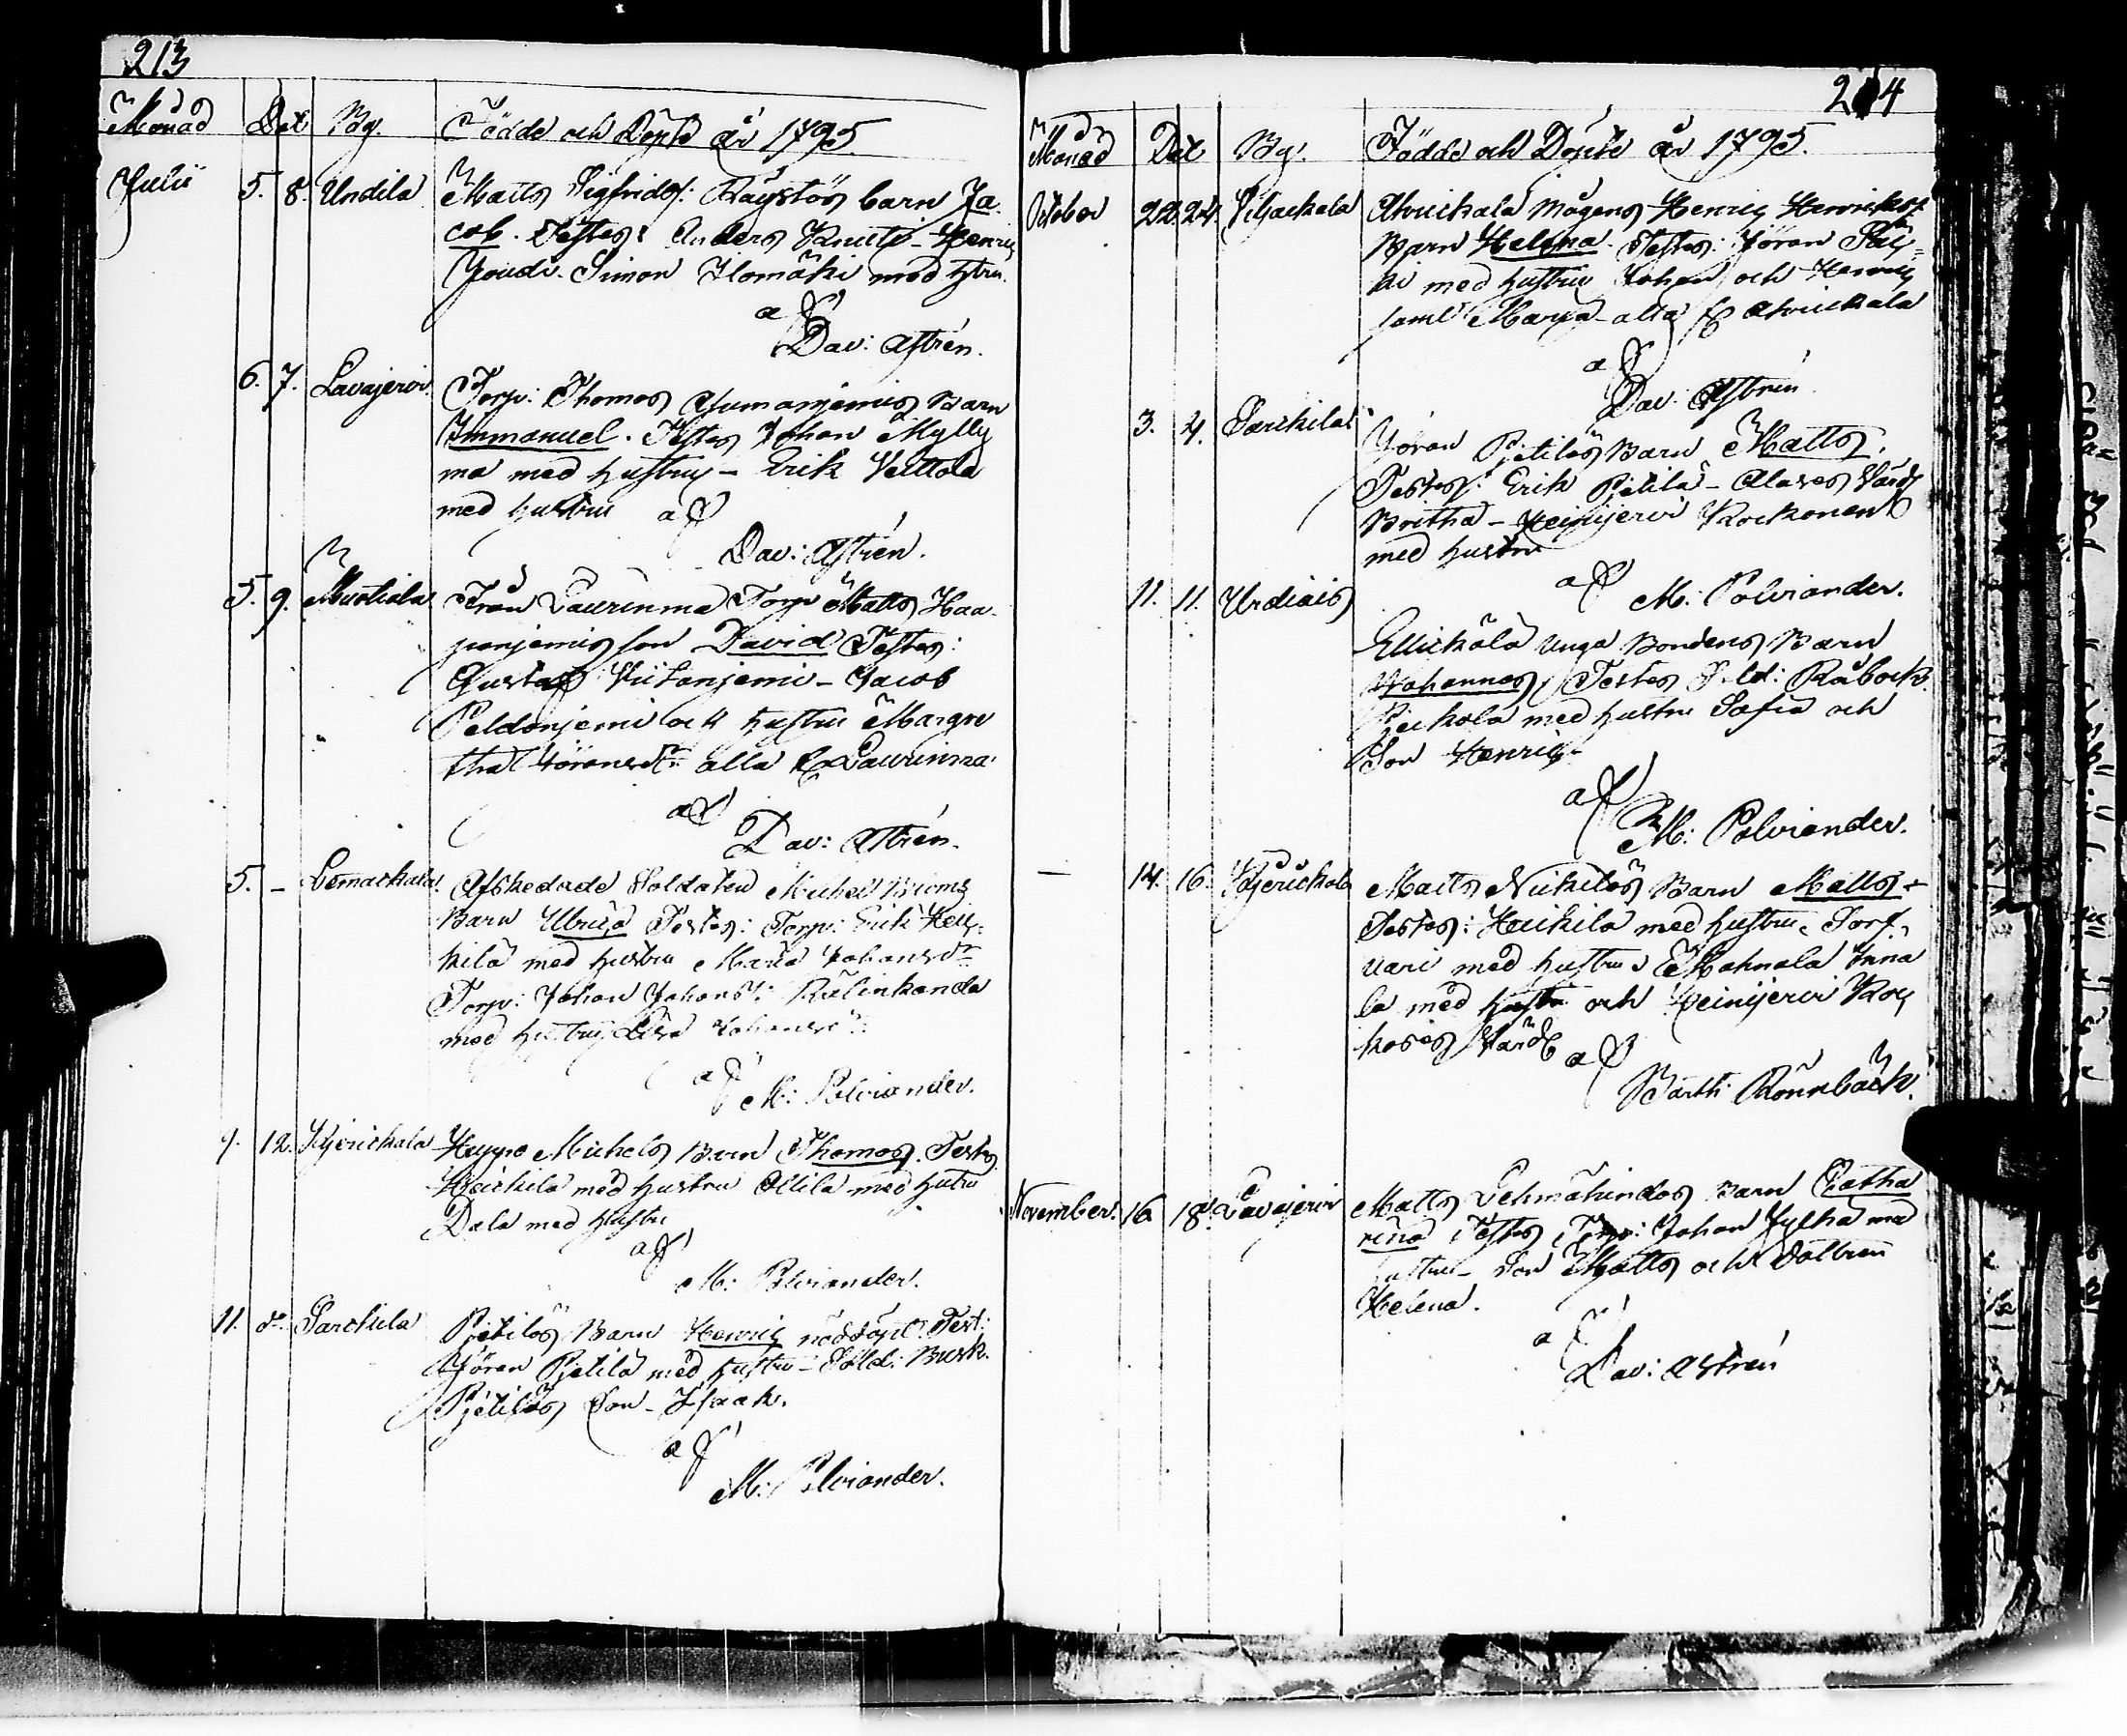 213
Monad Dat By. Födde och Döpte år 1795.
Julii 5. 8. Undila Matts Sigfrids: Räystös barn Ja
cob. Testes: Anders Knuti - Henric
Joudi. Simon Ilomäki med hstru.
af
Dav: Astrén.
6. 7. Lavajervi Torp: Thomas Barn
Immanuel. Testes Johan Mylly
ma med hustru - Erik Veittola
med hustru af
Dav: Astrén.
5. 9. Mustiala Från Laurinma Torp Matts Haa
panjemis son David Testes:
Gustaf Viitanjemi - Jacob
Peldonjemi och hustru Margre
tha Göransdr. alla fr Laurinma
af
Dav: Astrén.
5. - Lemackala. Afskedade Soldaten Michel Broms
Barn Ulrica Testes: Torp: Erik Hei
kilä med hustru Maria Johansdr
Torp: Johan Johans: Rälinkanda
med hustru Lisa Johansdr:
af
M: Polviander.
9. 12. Kyrickala Heppo Michels Barn Thomas. Testes
Heickilä med hustru Ollila med hustru
Dala med hustru
af
M: Polviander.
11. do. Sarckila Pjetilös Barn Henric nöddöpt. Test:
Jöran Pjetilä med hustru - Sold: Busk.
Pjetilös Son - Isaak.
af
M: Polviander.
214
Monad Dat By. Födde och Döpte år 1795.
October 22. 24. Viljackala Ahrickala Mågens Henric Henriks:
Barn Helena. Testes: Jöran
ki med hustru Johan och Henric
samt Maria - alla fr Ahrickala
af
Dav: Astrén.
3. 4. Sarckila Jöran Pjetilös Barn Matts.
Testes: Erik Pjetilä - Alares Värd
Britha - Heinijervi Kockonen
med hustru
af M: Polviander.
11. 11. Urdiais Ellickälä unga Bondens Barn
Johannes, Testes Sold: Råbock
med hustru Safia och
Son Henric.
af
M: Polviander.
— 14. 16. Kyrickala Matts Nickilös Barn Matts.
Testes: Heickilä med hustru. Torp.
vari med hustru Mahnala Inna
la med hustru och Heinijervi Koc
kosis Värd af
Barth: Rönnbäck.
November. 16. 18. Lavajervi Matts Lehmäkindos Barn Catha
rina Testes, Torp: Johan Jylhä med
hustru - Son Matts och Dottren
Helena.
af
Dav: Astrén